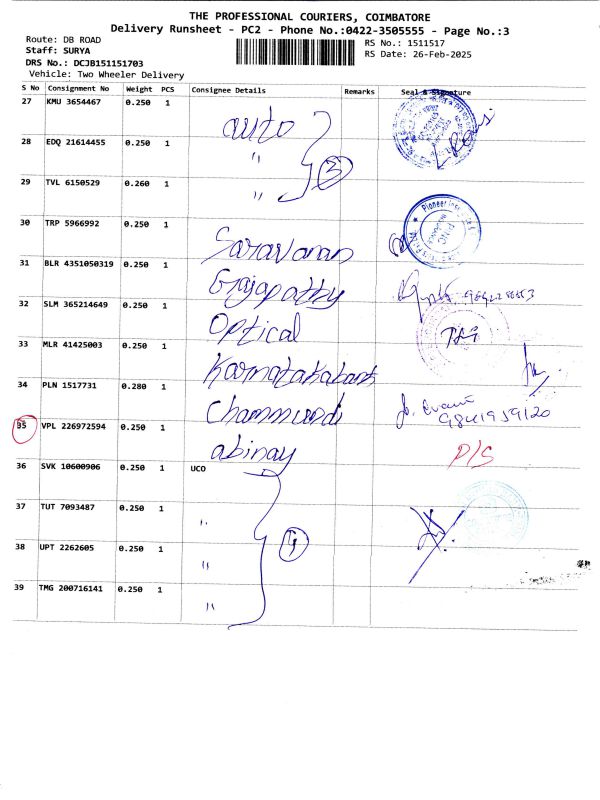 THE PROFESSIONAL COURIERS, COIMBATORE
Delivery Runsheet - PC2 - Phone No.:0422-3505555 - Page No.:3
Route: DB ROAD
RS No.: 1511517
Staff: SURYA
RS Date: 26-Feb-2025
DRS No.: DCJB151151703
Vehicle: Two Wheeler Delivery
S No Consignment No Weight PCS Consignee Details Remarks Seal & Signature
27 KMU 3654467 0.250 1 auto
28 EDQ 21614455 0.250 1 "
29 TVL 6150529 0.260 1 "
3
30 TRP 5966992 0.250 1 Saravanan
31 BLR 4351050319 0.250 1 Gajapathy
32 SLM 365214649 0.250 1 Optical
33 MLR 41425003 0.250 1
34 PLN 1517731 0.280 1 Chammundi
35 VPL 226972594 0.250 1 abinay D/S
36 SVK 10600906 0.250 1 UCO
37 TUT 7093487 0.250 1 "
38 UPT 2262605 0.250 1 "
39 TMG 200716141 0.250 1 "
4